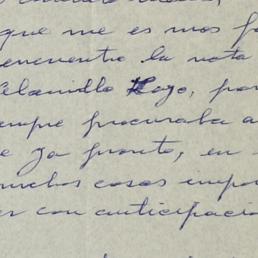 que me es mas fa
encuentro la nota
Alamillo Lago, por
empre procuraba a
e ya pronto, en
muchas cosas impor
es con anticipació